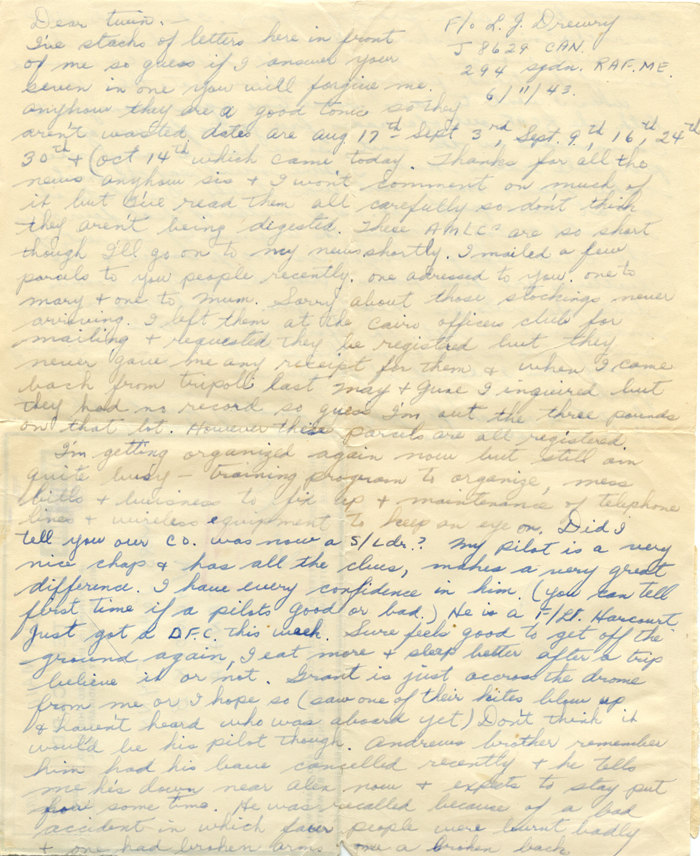 Dear twin. —
F/o L. J. Drewry
J 8629 CAN.
294 sqdn. RAF. ME.
6/11/43.
I've stacks of letters here in front
of me so guess if I answer your
seven in one you will forgive me.
anyhow they are a good tonic so they
aren't wasted dates are aug 17th Sept 3rd, Sept. 9th, 16th, 24th
30th & (Oct 14th which came today. Thanks for all the
news anyhow sis & I won't comment on much of
it but I've read them all carefully so don't think
they aren't being digested. These AMLCs are so short
though I'll go on to my news shortly. I mailed a few
parcels to you people recently. one adressed to you. one to
mary & one to mum. Sorry about those stockings never
arriving. I left them at the Cairo officers club for
mailing & requested they be registered but they
never gave me any receipt for them & when I came
back from tripoli last may & June I inquired but
they had no record so guess I'm out the three pounds
on that lot. However these parcels are all registered
I'm getting organized again now but still am
quite busy — training program to organize, mess
bills & business to fix up & maintenance of telephone
lines & wireless equipment to keep an eye on. Did I
tell you our C.O. was now a S/Ldr.? My pilot is a very
nice chap & has all the clues, makes a very great
difference. I have every confidence in him. (you can tell
first time if a pilots good or bad.) He is a F/Lt. Harcourt
Just got a D.F.C. this week. Sure feels good to get off the
ground again, I eat more & sleep better after a trip
believe it or not. Grant is just across the drome
from me or I hope so (saw one of their kites blow up
& haven't heard who was aboard yet) Don't think it
would be his pilot though. Andrews brother remember
him had his leave cancelled recently & he tells
me his down near Alex now & expects to stay put
for some time. He was recalled because of a bad
accident in which four people were burnt badly
& one had broken arms one a broken back